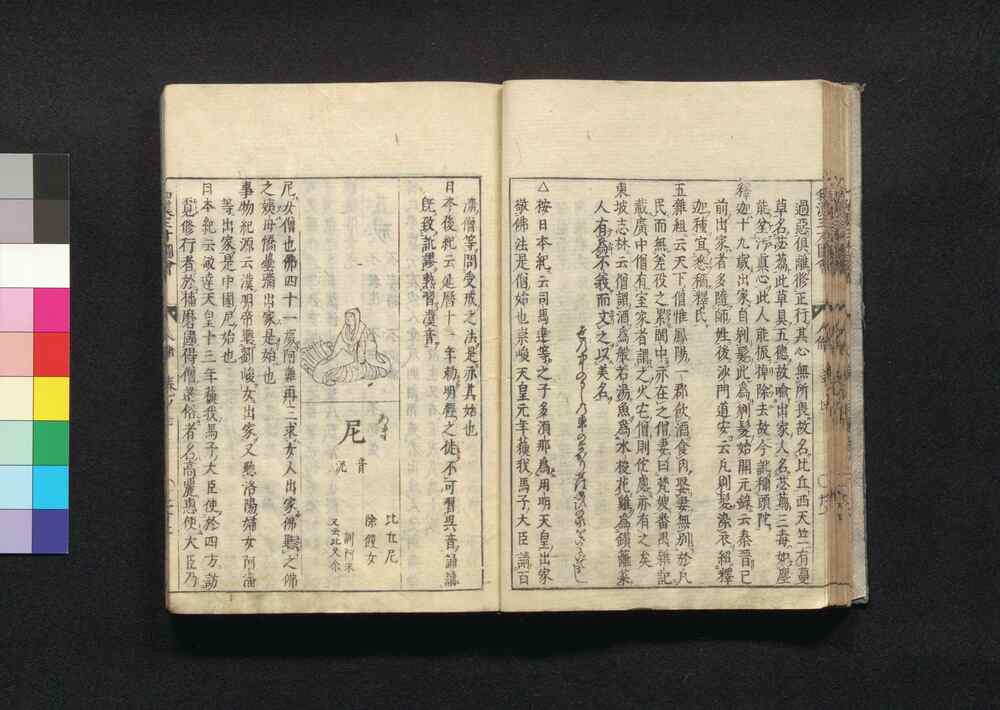 過惡俱離修正行其心無所畏故名比丘西天竺有蔓
草名苾蒭此草具五德故喩出家人名苾蒭三毒如塵
能坌汚真心此人能振掉除去故今訛稱頭陀
釋迦十九歲出家自剃髮此爲剃髮始開元錄云秦晉已
前出家者多隨師姓後沙門道安云凡剃髮染衣紹釋
迦種宜悉稱釋氏
五雜組云天下僧惟鳳陽一郡飲酒食肉娶妻無別於凡
民而無差役之累閩中亦在之僧妻曰梵嫂番禺雜記
載廣中僧有室家者謂之火宅僧則使處亦有之矣
東坡志林云僧謂酒爲般若湯魚爲水梭花雞爲鑽籬菜
人有爲不義而文之以美名
△按日本紀云司馬達等之子多須那爲用明天皇出家
敬佛法是僧始也崇峻天皇元年蘇我馬子大臣請百
濟僧等問受戒之法是亦其始也
日本後紀云延曆十一年勅明經之徒不可習吳音誦讀
旣致訛謬熟習漢音
尼
音
泥
比丘尼
除饉女
尼女僧也佛四十一歲阿難再三求女人出家佛聽之佛
之姨母憍曇彌出家是始也
事物紀源云漢明帝聽劉峻女出家又聽洛陽婦女阿潘
等出家是中國尼始也
日本紀云敏達天皇十三年蘇我馬子大臣使於四方訪
覓修行者於播磨國得僧還俗者名高麗惠便大臣乃